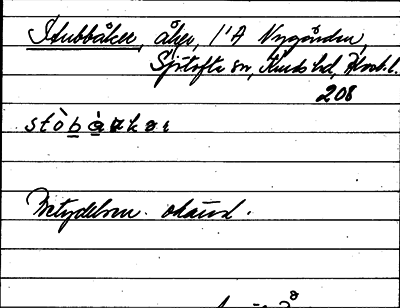 Stubbåker, åker, 1/4 Nygården,
Sjötofta sn, Kinds hd, Älvsb. l.
208
stòbàkər
Betydelsen okänd.